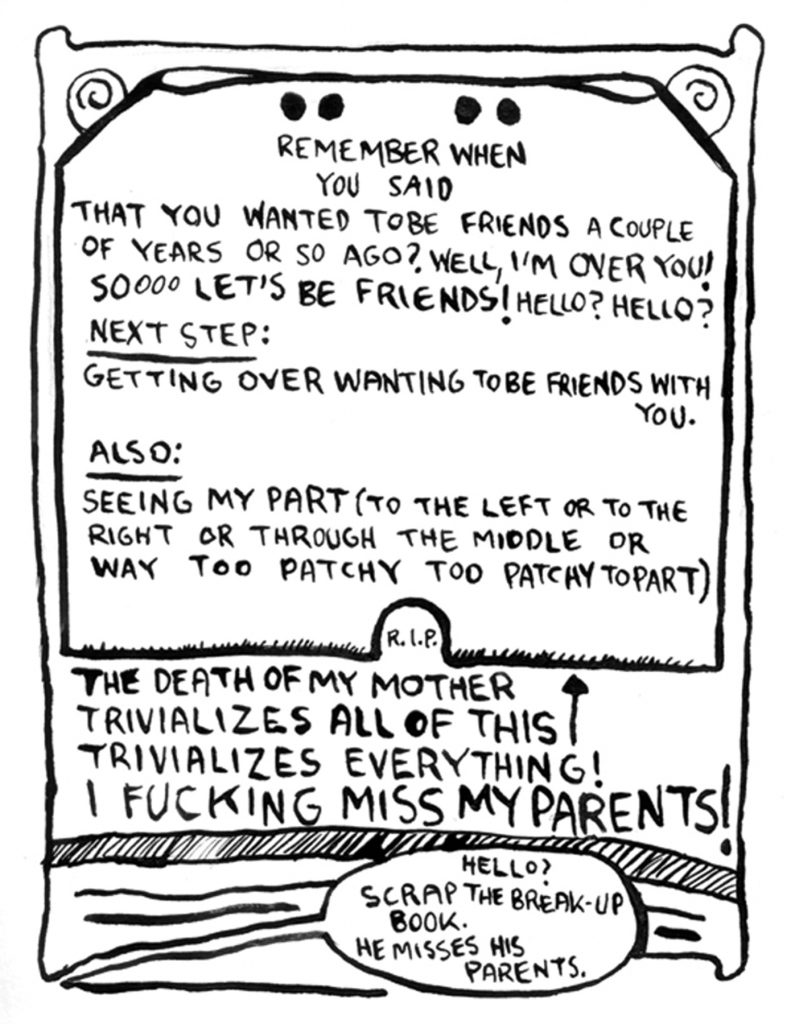 REMEMBER WHEN
YOU SAID
THAT YOU WANTED TOBE FRIENDS A COUPLE
OF YEARS OR SO AGO? WELL, I'M OVER YOU!
SOOOO LET'S BE FRIENDS! HELLO? HELLO?
NEXT STEP:
GETTING OVER WANTING TOBE FRIENDS WITH
YOU.
ALSO:
SEEING MY PART (TO THE LEFT OR TO THE
RIGHT OR THROUGH THE MIDDLE OR
WAY TOO PATCHY TOO PATCHY TOPART)
R.I.P.
THE DEATH OF MY MOTHER
TRIVIALIZES ALL OF THIS
TRIVIALIZES EVERYTHING!
I FUCKING MISS MY PARENTS!
HELLO?
SCRAP THE BREAK-UP
BOOK.
HE MISSES HIS
PARENTS.